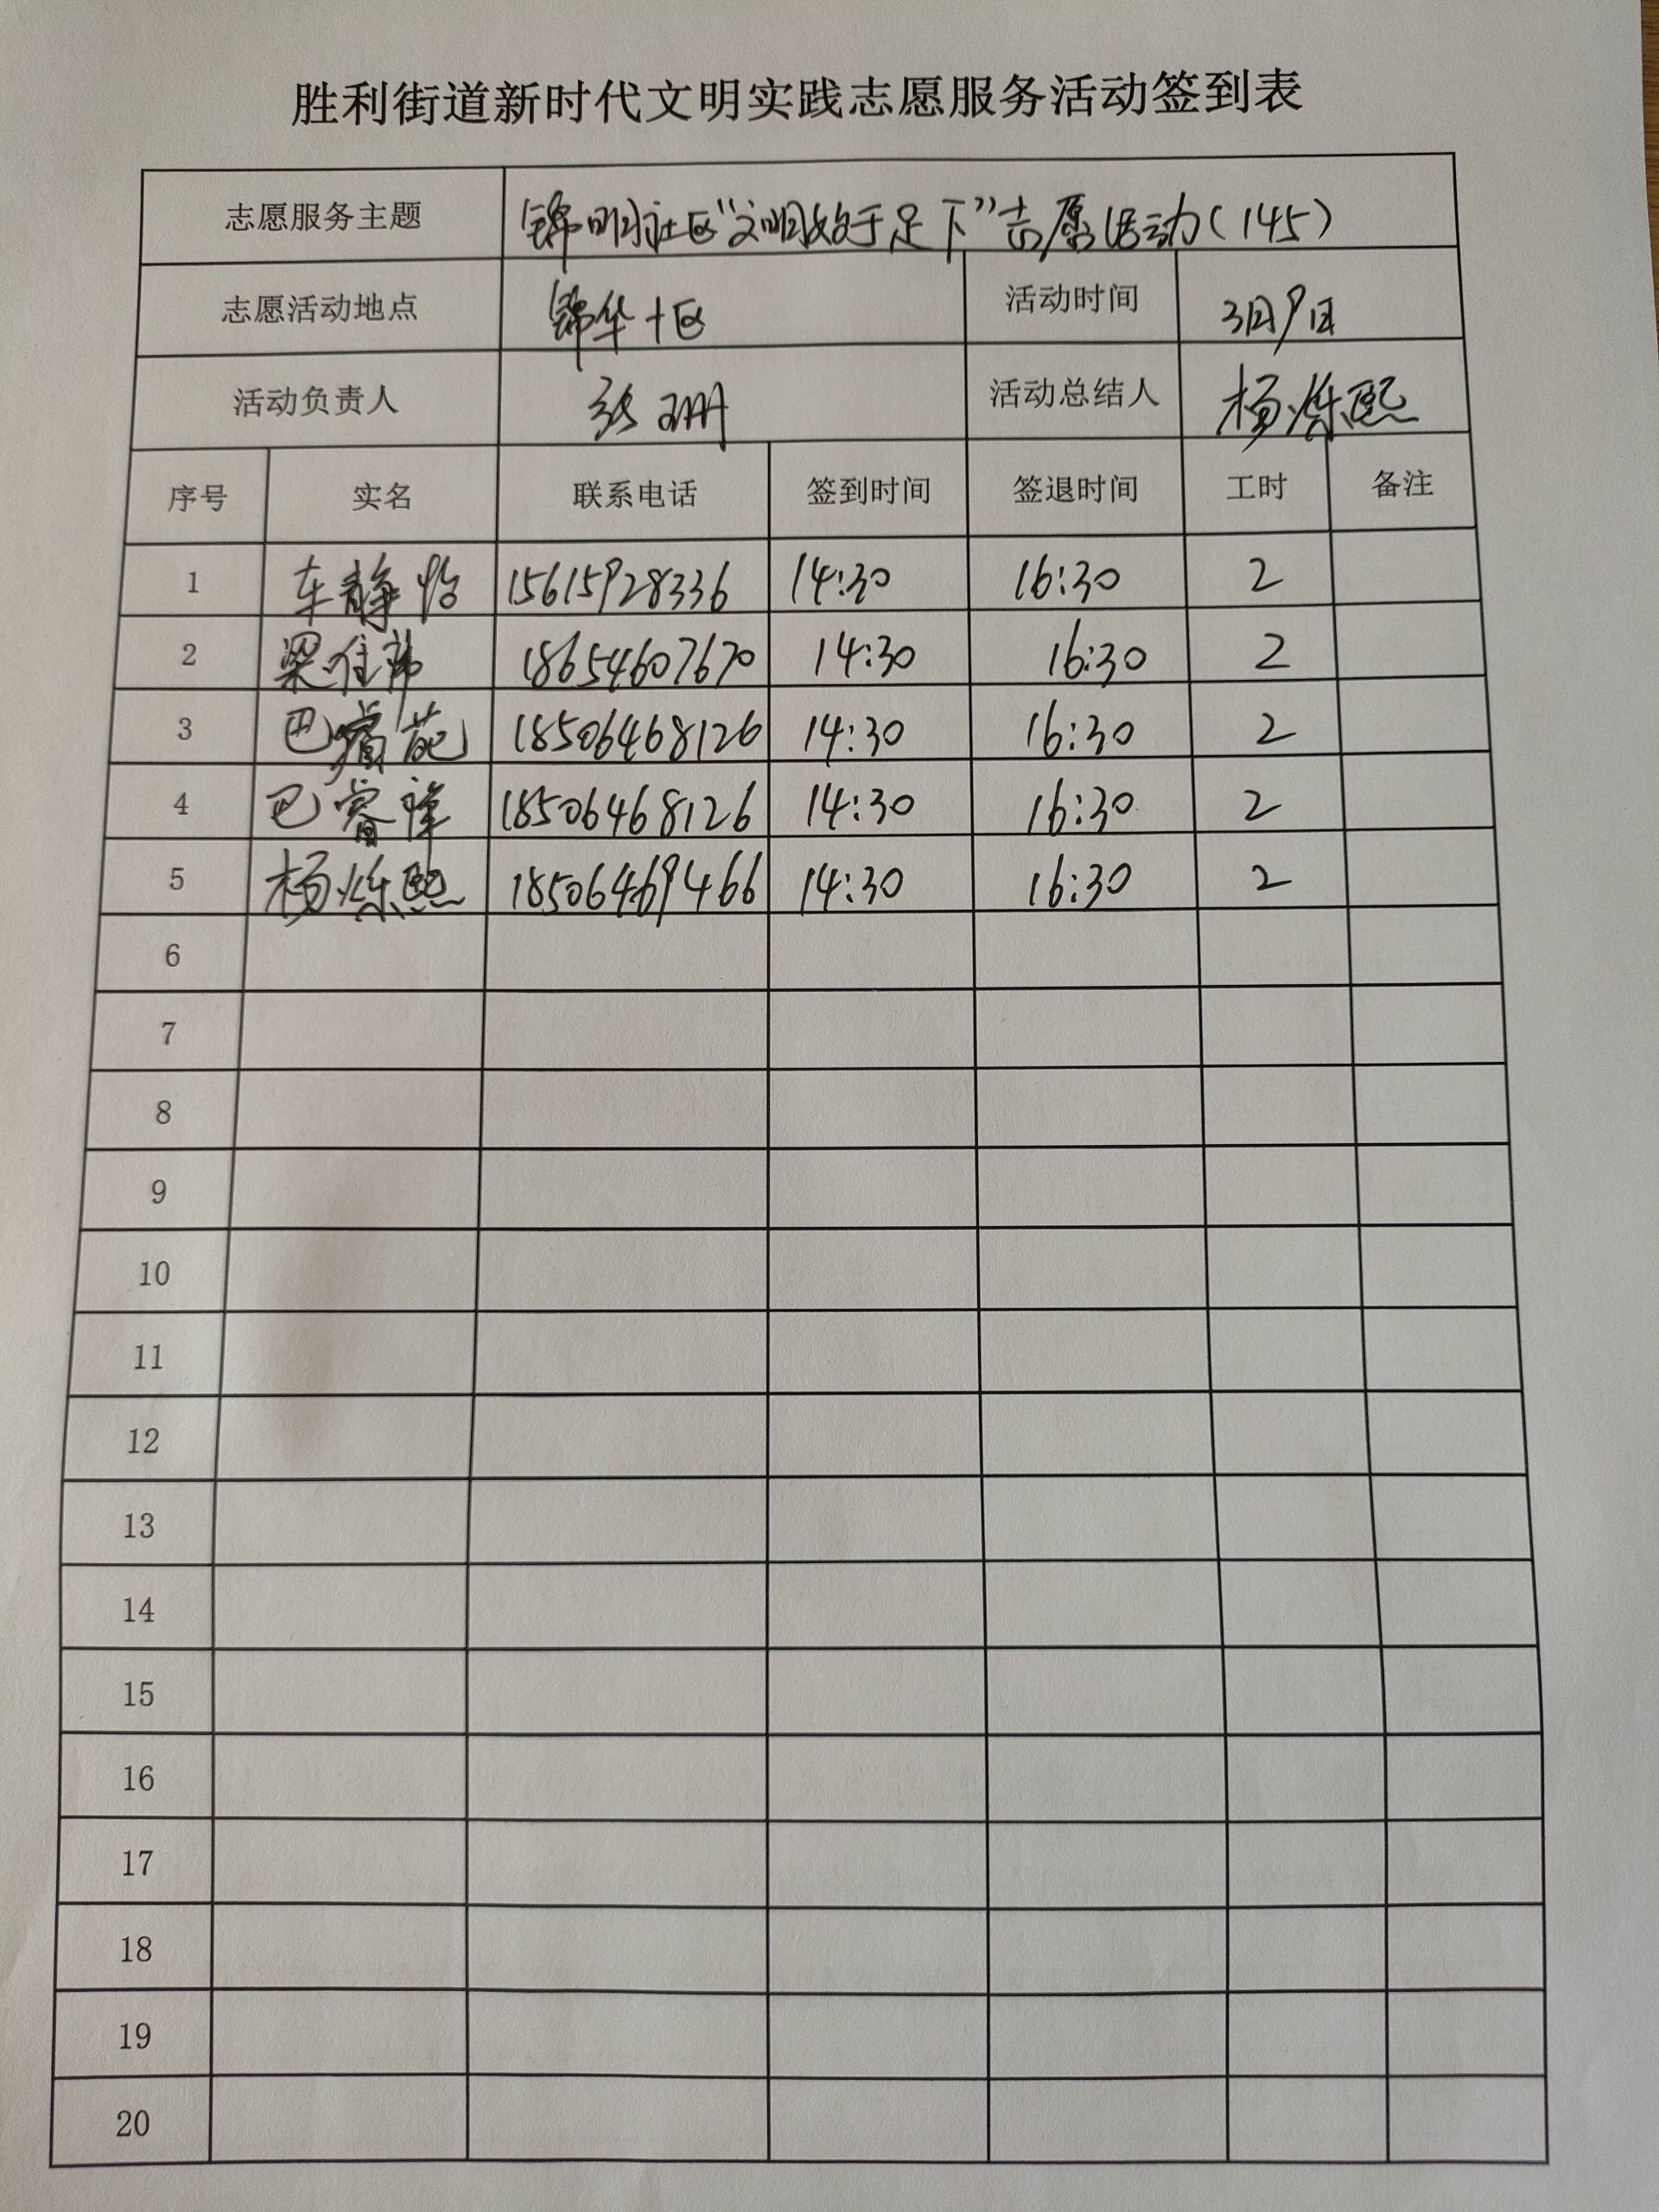 胜利街道新时代文明实践志愿服务活动签到表
志愿服务主题 锦明社区“文明始于足下”志愿活动(145)
志愿活动地点 锦华十区 活动时间 3月9日
活动负责人 张珊 活动总结人 杨烁熙
序号 实名 联系电话 签到时间 签退时间 工时 备注
1 车静怡 15615928336 14:30 16:30 2
2 梁 18654607670 14:30 16:30 2
3 巴睿葩 18506468126 14:30 16:30 2
4 巴睿 18506468126 14:30 16:30 2
5 杨烁熙 18506469466 14:30 16:30 2
6
7
8
9
10
11
12
13
14
15
16
17
18
19
20